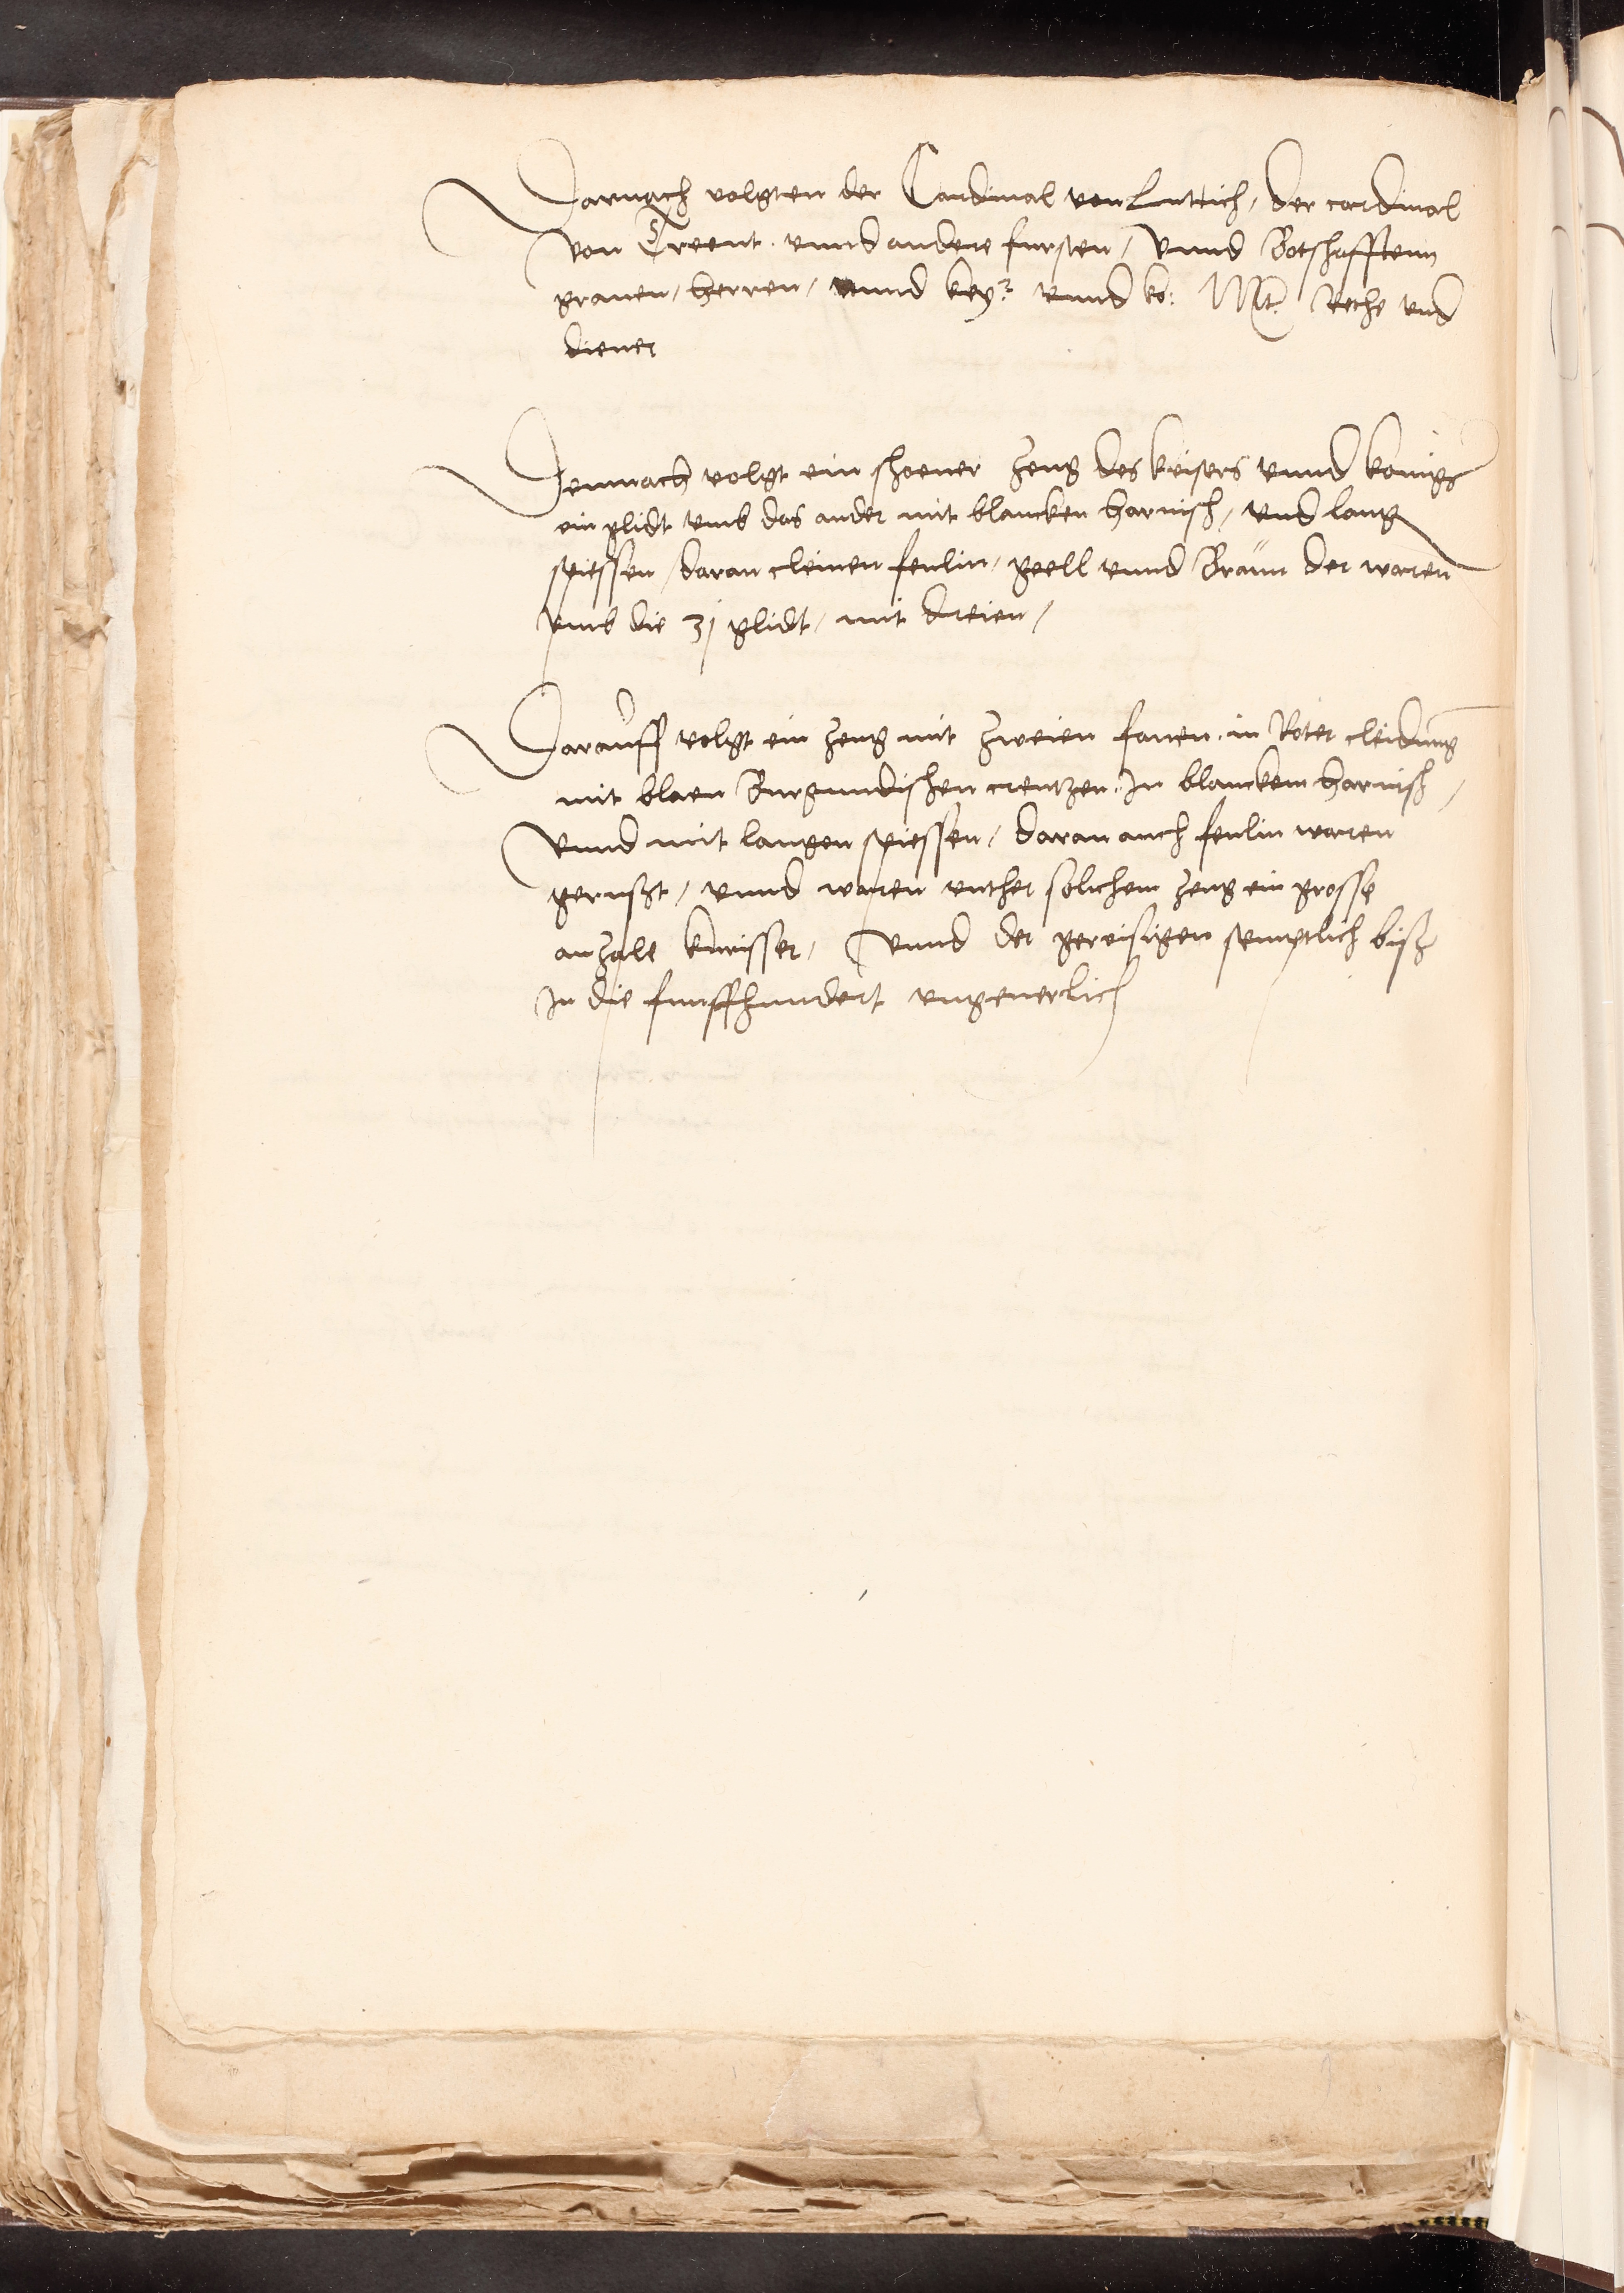 Darnach volgten der Cardinal von Luttich, der cardinal
von Treent. vnnd andere fursten, vnnd Botshafftenn
grauen, herren, vnnd key.r vnnd ko: Mt. Rethe vnd
diener
Demnach volgt ein shoener zeug des keisers vnnd konigs
ein glidt vmb das ander mit blancken harnish, vnd lang
spiessen, daran cleinen fenlin, geell vnnd Braün der waren
vmb die 31 glidt, mit dreien,
Darauff volgt ein zeug mit zweien fanen. in Roter cleidung
mit blaen Burgundishen creutzen. In blanckem harnish,
vnnd mit langen spiessen, daran auch fenlin waren
gerusst, vnnd waren vnther solichem zeug ein grosse
anzale kurisser, vnnd der gereisigen semptlich bisz
In die funffhundert vngeuerlich